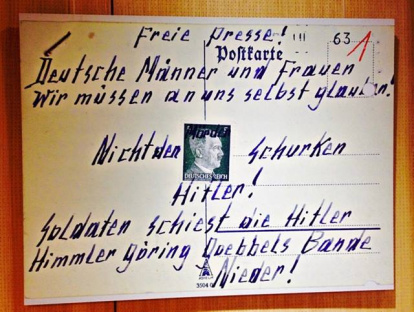 Freie Presse!
Postkarte
63
1
Deutsche Männer und Frauen
Wir müssen an uns selbst glauben!
Mörder
Nicht den Schurken
DEUTSCHES REICH
Hitler!
Soldaten schiest die Hitler
Himmler Göring Goebbels Bande
Nieder!